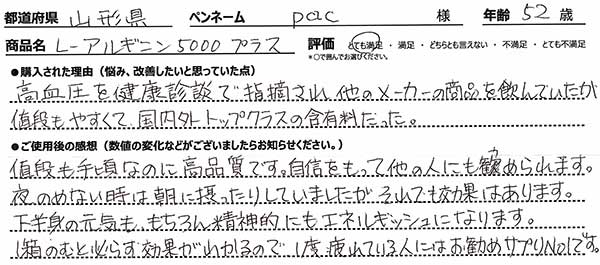 都道府県 山形県 ペンネーム pac 様 年齢 52 歳
商品名 L-アルギニン5000プラス 評価 とても満足 ・ 満足 ・ どちらとも言えない ・ 不満足 ・ とても不満足
*○で囲んでお選びください。
●購入された理由（悩み、改善したいと思っていた点）
高血圧を健康診談で指摘され、他のメーカーの商品を飲んでいたが
値段もやすくて、国内外トップクラスの含有料だった。
●ご使用後の感想（数値の変化などがございましたらお知らせください。）
値段も手頃なのに高品質です。自信をもって他の人にも勧められます。
夜のめない時は朝に摂ったりしていましたが それでも効果はあります。
下半身の元気も、もちろん精神的にもエネルギッシュになります。
1箱のむと必らず効果がわかるので 1度 疲れている人にはお勧めサプリNo1です。